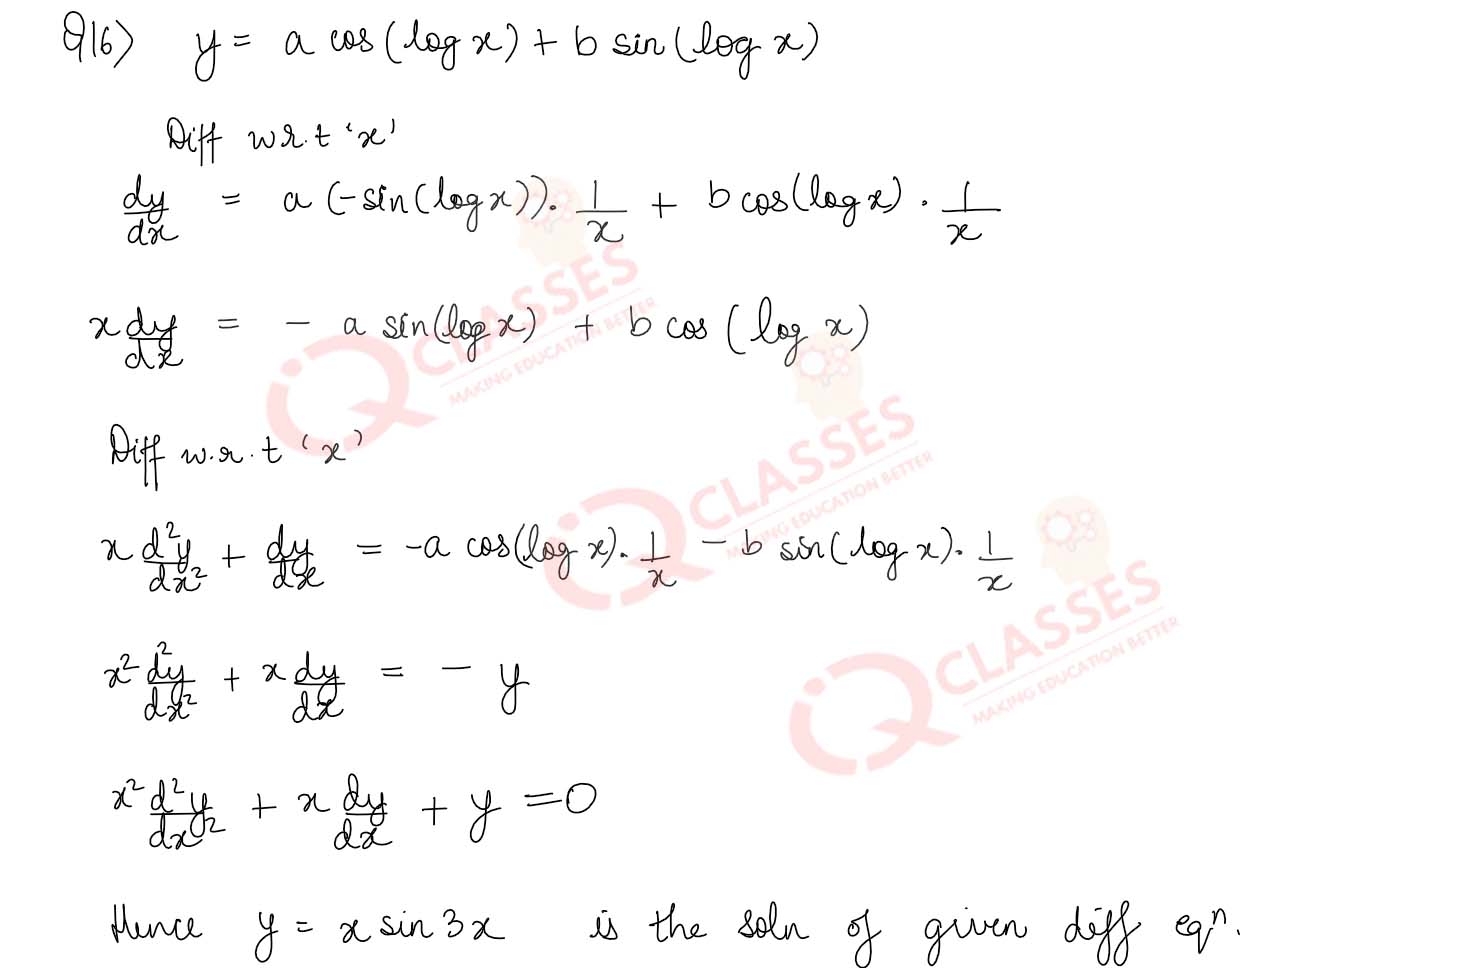 Q16) y = a cos(log x) + b sin(log x)
Diff w.r.t 'x'
dy/dx = a(-sin(log x)).1/x + b cos(log x) . 1/x
x dy/dx = - a sin(log x) + b cos(log x)
Diff w.r.t 'x'
x d²y/dx² + dy/dx = -a cos(log x).1/x - b sin(log x).1/x
x² d²y/dx² + x dy/dx = - y
x² d²y/dx² + x dy/dx + y = 0
Hence y = x sin 3x is the soln of given diff eqⁿ.
iQ CLASSES
MAKING EDUCATION BETTER
iQ CLASSES
MAKING EDUCATION BETTER
iQ CLASSES
MAKING EDUCATION BETTER